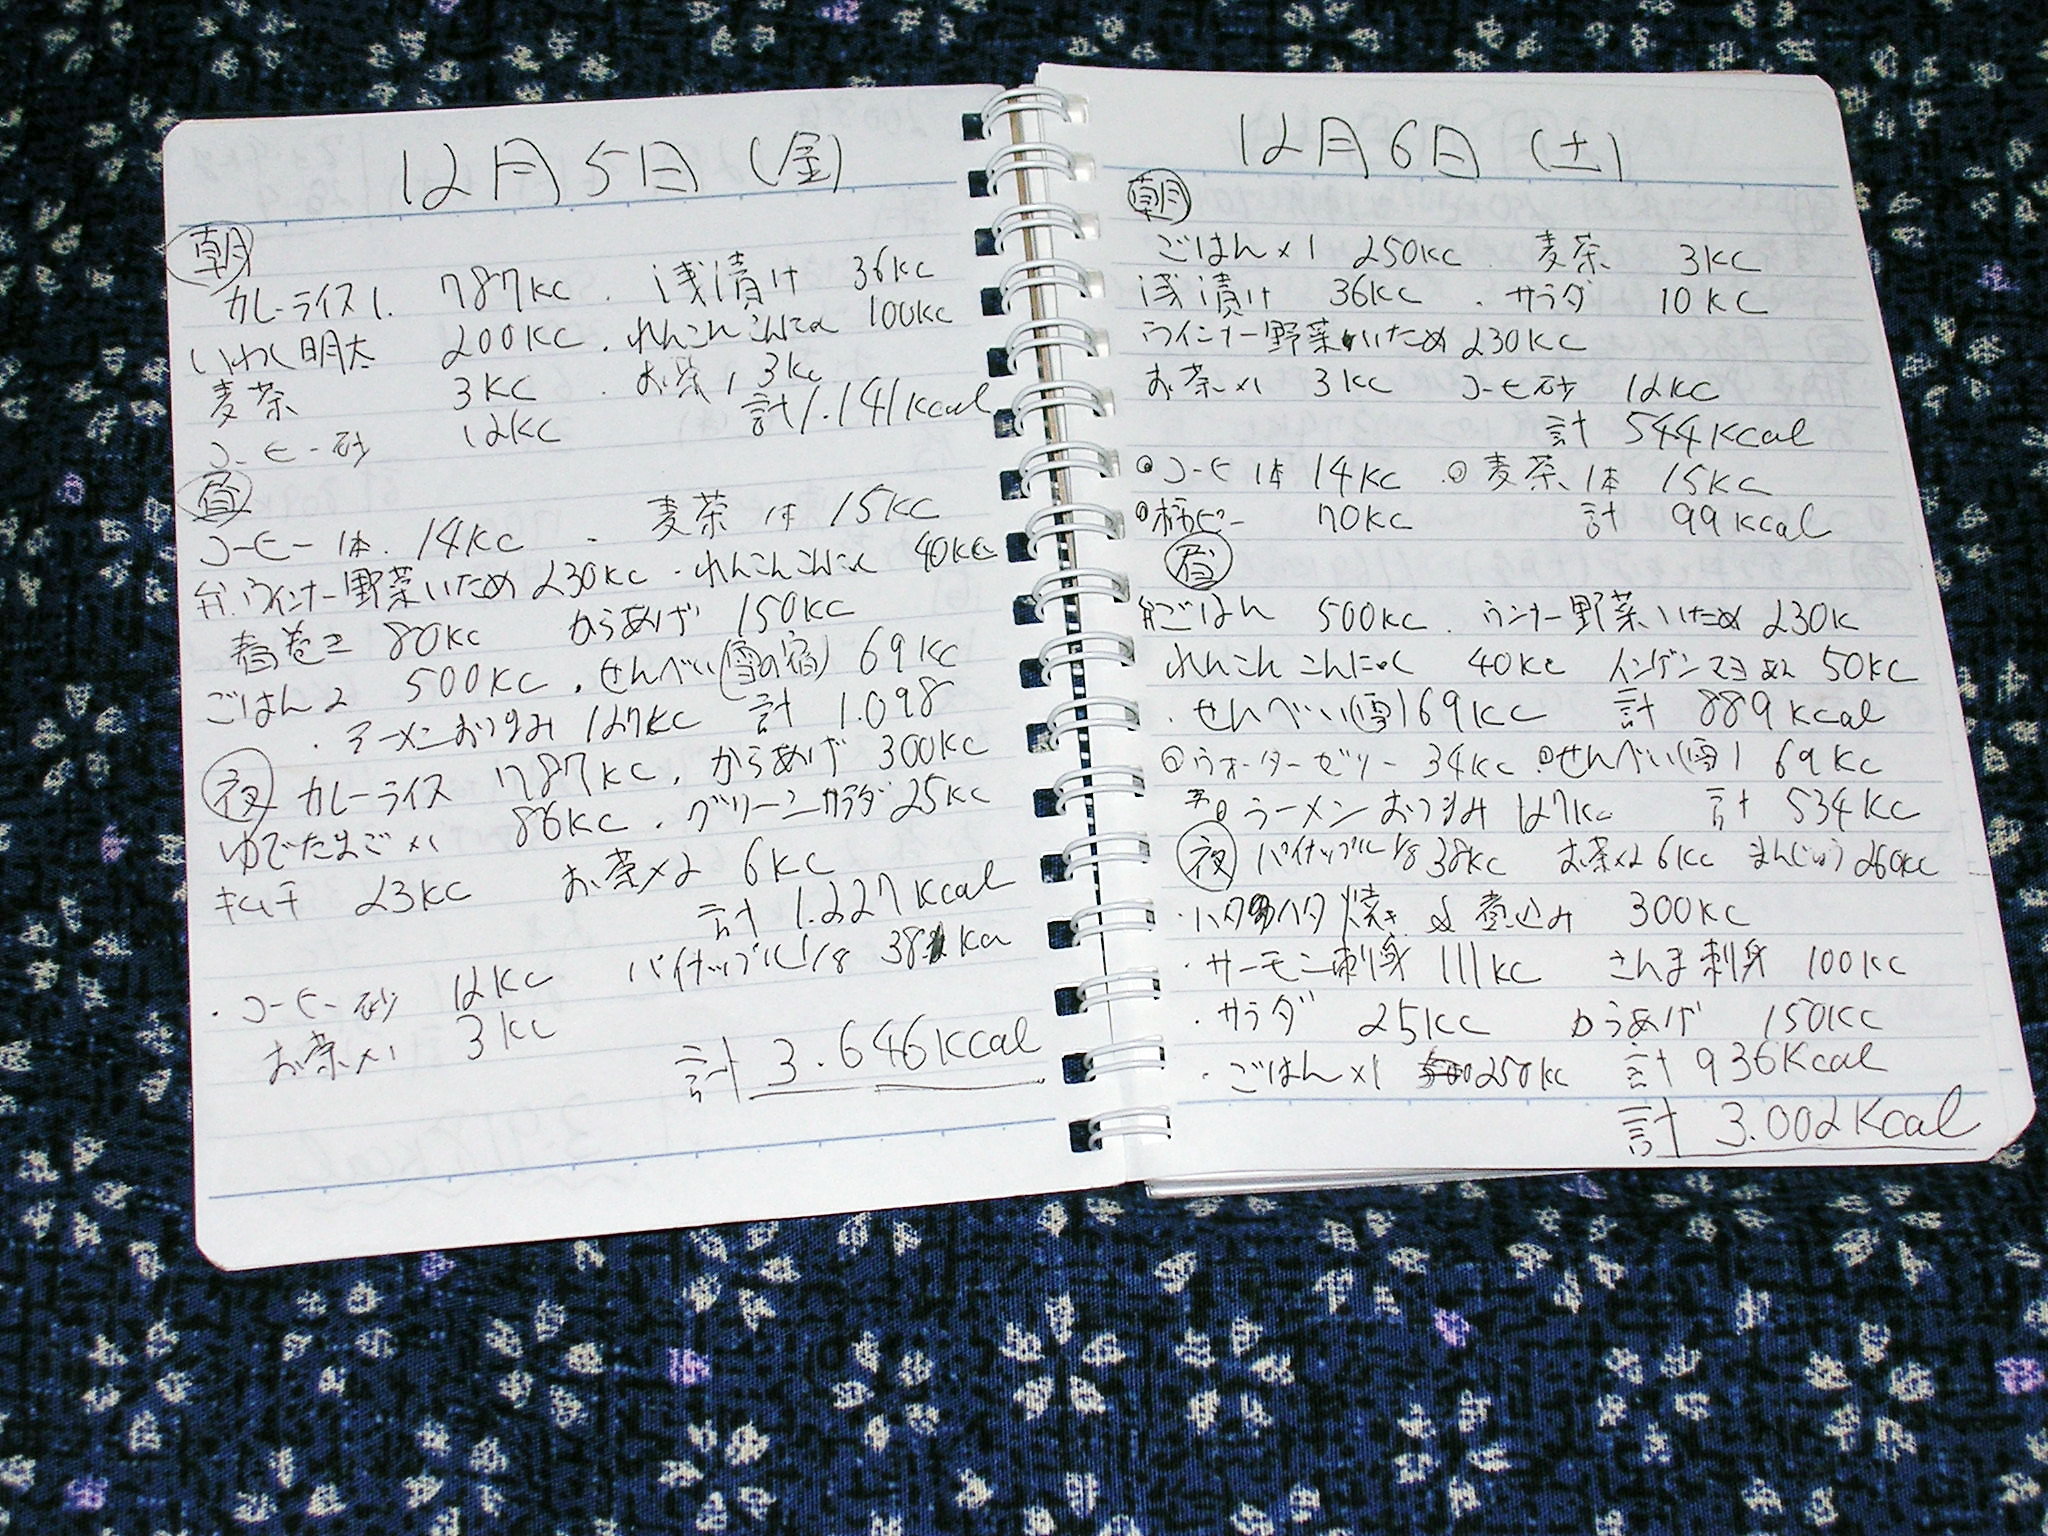 12月5日(金)
朝
カレーライス1. 787KC . 浅漬け 36KC
いわし明太 200KC . れんこんこんにゃく 100KC
麦茶 3KC . お茶1 3KC
コーヒー砂 12KC 計1.141Kcal
昼
コーヒー1本. 14KC . 麦茶1本 15KC
弁.ウインナー野菜いため 230KC . れんこんこんにゃく 40KC
春巻き 80KC からあげ 150KC
ごはん2 500KC . せんべい(雪の宿) 69KC
. ラーメンおつまみ 127KC 計 1.098
夜 カレーライス 787KC . からあげ 300KC
ゆでたまご×1 86KC . グリーンサラダ 25KC
キムチ 23KC お茶×2 6KC
計 1.227Kcal
. コーヒー砂 12KC パイナップル1/8 38 Kcal
お茶×1 3KC
計 3.646Kcal
12月6日(土)
朝
ごはん×1 250KC . 麦茶 3KC
浅漬け 36KC . サラダ 10KC
ウインナー野菜いため 230KC
お茶×1 3KC コーヒ砂 12KC
計 544Kcal
コーヒ1本 14KC 麦茶1本 15KC
柿ピー 70KC 計 99Kcal
昼
弁ごはん 500KC . ウンナー野菜いため 230K
れんこんこんにゃく 40KC インゲンマヨあえ 50KC
. せんべい(雪)69KC 計 889Kcal
ウォーターゼリー 34KC せんべい(雪) 69KC
ラーメンおつまみ 127KC 計 534KC
夜 パイナップル1/8 38KC お茶×2 6KC まんじゅう 260KC
・ハタハタ焼き & 煮込み 300KC
・サーモン刺身 111KC さんま刺身 100KC
・サラダ 25KC からあげ 150KC
・ごはん×1 250KC 計 936Kcal
計 3.002Kcal